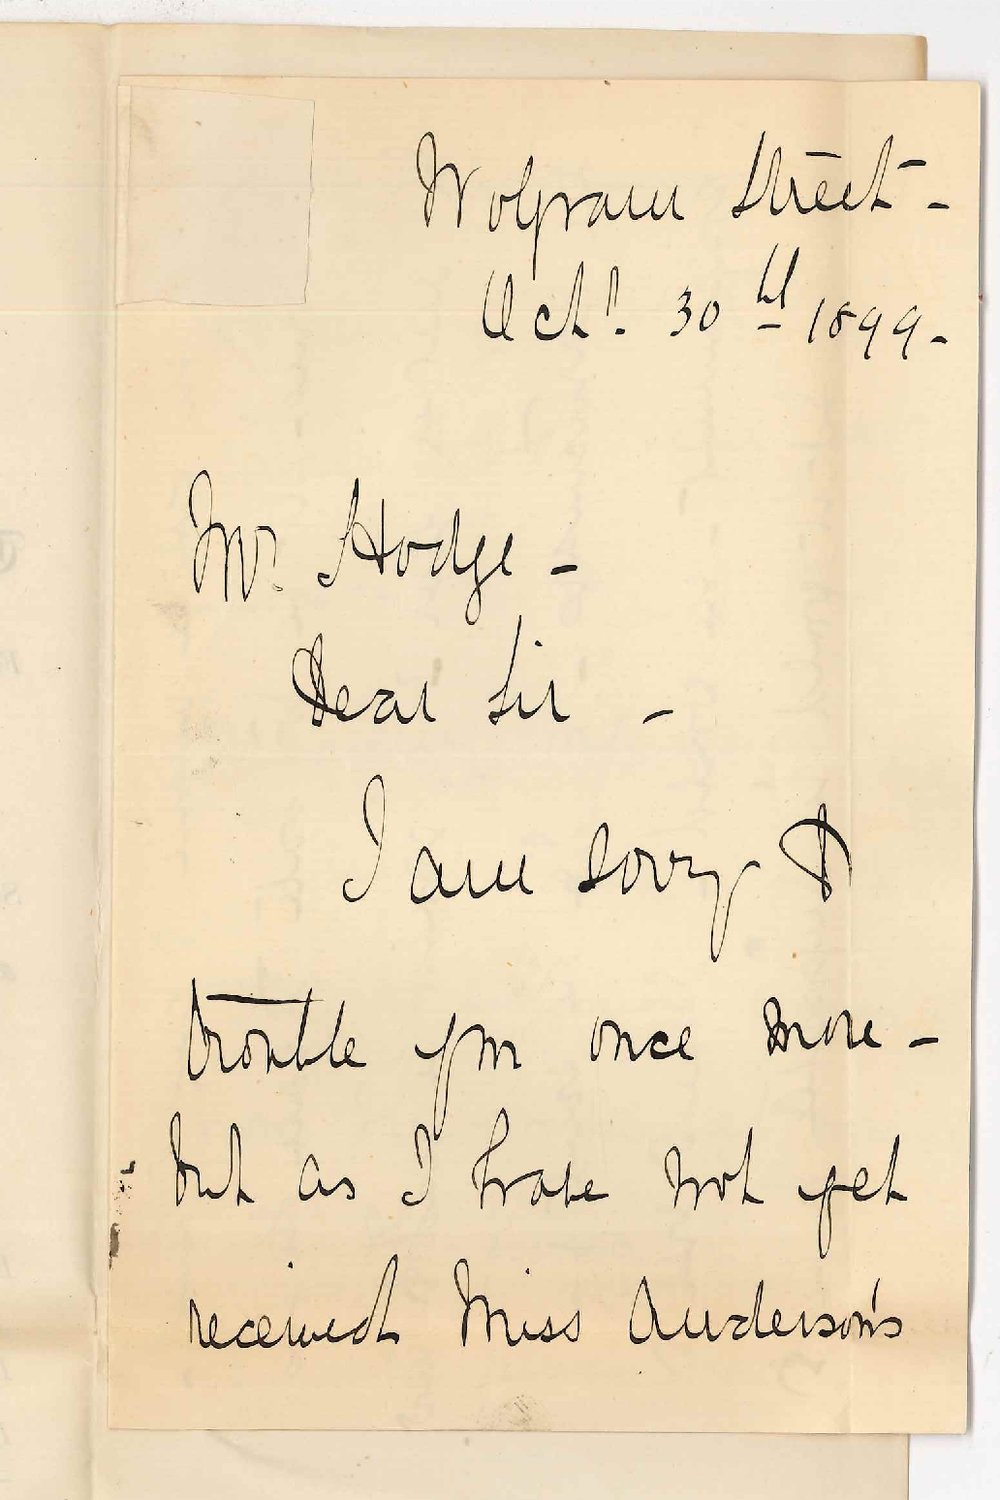 Wolfram Street -
Octr. 30th 1899 -
Mr. Hodge -
Dear Sir -
I am sorry to
trouble you once more -
but as I have not yet
received Miss Anderson's